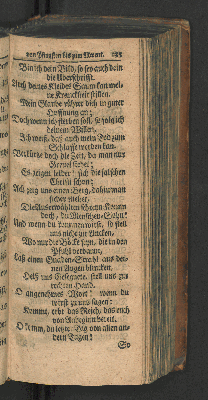 von Pfingsten bis zum Advent. 
Bin ich dein Bild, so sey auch dein
die Uberschrifft.
Auch deines Kleides Saum kan mei-
ne Kranckheit stillen.
Mein Glaube rühret dich in guter
Hoffnung an;
Doch wenn ich sterben soll, so folg ich
deinem Willen,
Ich weiß, daß auch mein Tod zum
Schlaffe werden kan.
Verkürtze doch die Zeit, da man nur
Greuel siehet;
Es zeigen leider! sich die falschen
Christi schon;
Ach zeig uns einen Berg, dahin man
sicher fliehet,
Die Auserwählten
doch, du Menschen-Sohn!
Und wenn du kommen wirst, so stell
uns nicht zur Lincken,
Wo nur die Böcke seyn, die in den
Pfuhl verbannt,
Laß einen Gnaden-Strahl aus dei-
nen Augen blincken,
Heiß uns Gesegnete, stell uns zu
rechten Hand.
O angenehmes Wort! wenn du
wirst zu uns sagen:
Kommt, erbt das Reich, das euch
von Anbeginn bereit.
O komm, du letzter Tag von allen an-
dern Tagen!
So